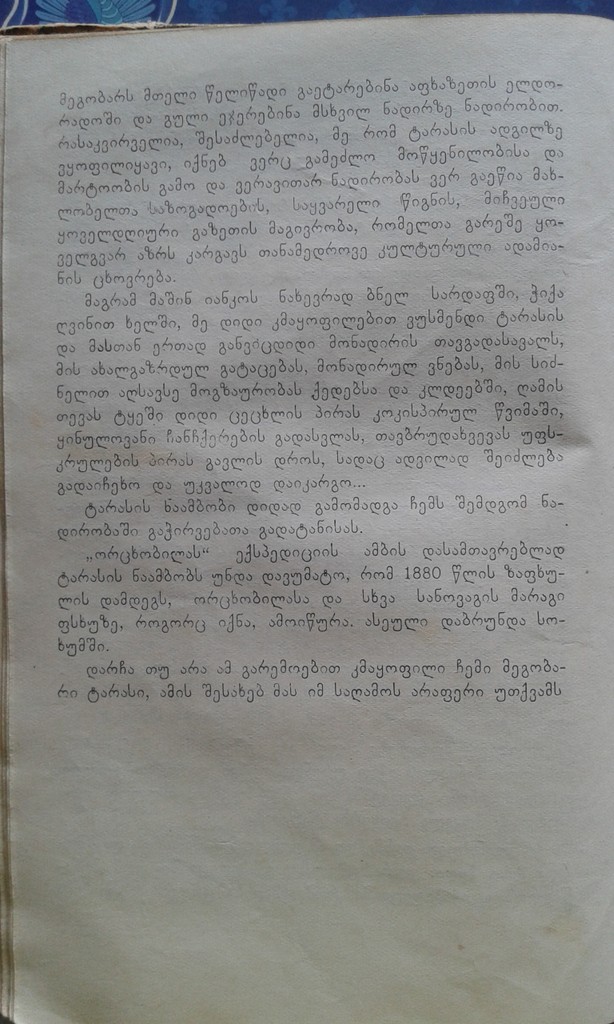 მეგობარს მთელი წელიწადი გაეტარებინა აფხაზეთის ელდო-
რადოში და გული ეჯერებინა მსხვილ ნადირზე ნადირობით.
რასაკვირველია, შესაძლებელია, მე რომ ტარასის ადგილზე
ვყოფილიყავი, იქნებ ვერც გამეძლო მოწყენილობისა და
მარტოობის გამო და ვერავითარ ნადირობას ვერ გაეწია მახ-
ლობელთა საზოგადოების, საყვარელი წიგნის, მიჩვეული
ყოველდღიური გაზეთის მაგივრობა, რომელთა გარეშე ყო-
ველგვარ აზრს კარგავს თანამედროვე კულტურული ადამია-
ნის ცხოვრება.
მაგრამ მაშინ იანკოს ნახევრად ბნელ სარდაფში, ჭიქა
ღვინით ხელში, მე დიდი კმაყოფილებით ვუსმენდი ტარასის
და მასთან ერთად განვიცდიდი მონადირის თავგადასავალს,
მის ახალგაზრდულ გატაცებას, მონადირულ ვნებას, მის სიძ-
ნელით აღსავსე მოგზაურობას ქედებსა და კლდეებში, ღამის
თევას ტყეში დიდი ცეცხლის პირას კოკისპირულ წვიმაში,
ყინულოვანი ჩანჩქერების გადასვლას, თავბრუდახვევას უფს-
კრულების პირას გავლის დროს, სადაც ადვილად შეიძლება
გადაიჩეხო და უკვალოდ დაიკარგო...
ტარასის ნაამბობი დიდად გამომადგა ჩემს შემდგომ ნა-
დირობაში გაჭირვებათა გადატანისას.
„ორცხობილას“ ექსპედიციის ამბის დასამთავრებლად
ტარასის ნაამბობს უნდა დავუმატო, რომ 1880 წლის ზაფხუ-
ლის დამდეგს, ორცხობილასა და სხვა სანოვაგის მარაგი
ფსხუზე, როგორც იქნა, ამოიწურა. ასეული დაბრუნდა სო-
ხუმში.
დარჩა თუ არა ამ გარემოებით კმაყოფილი ჩემი მეგობა-
რი ტარასი, ამის შესახებ მას იმ საღამოს არაფერი უთქვამს